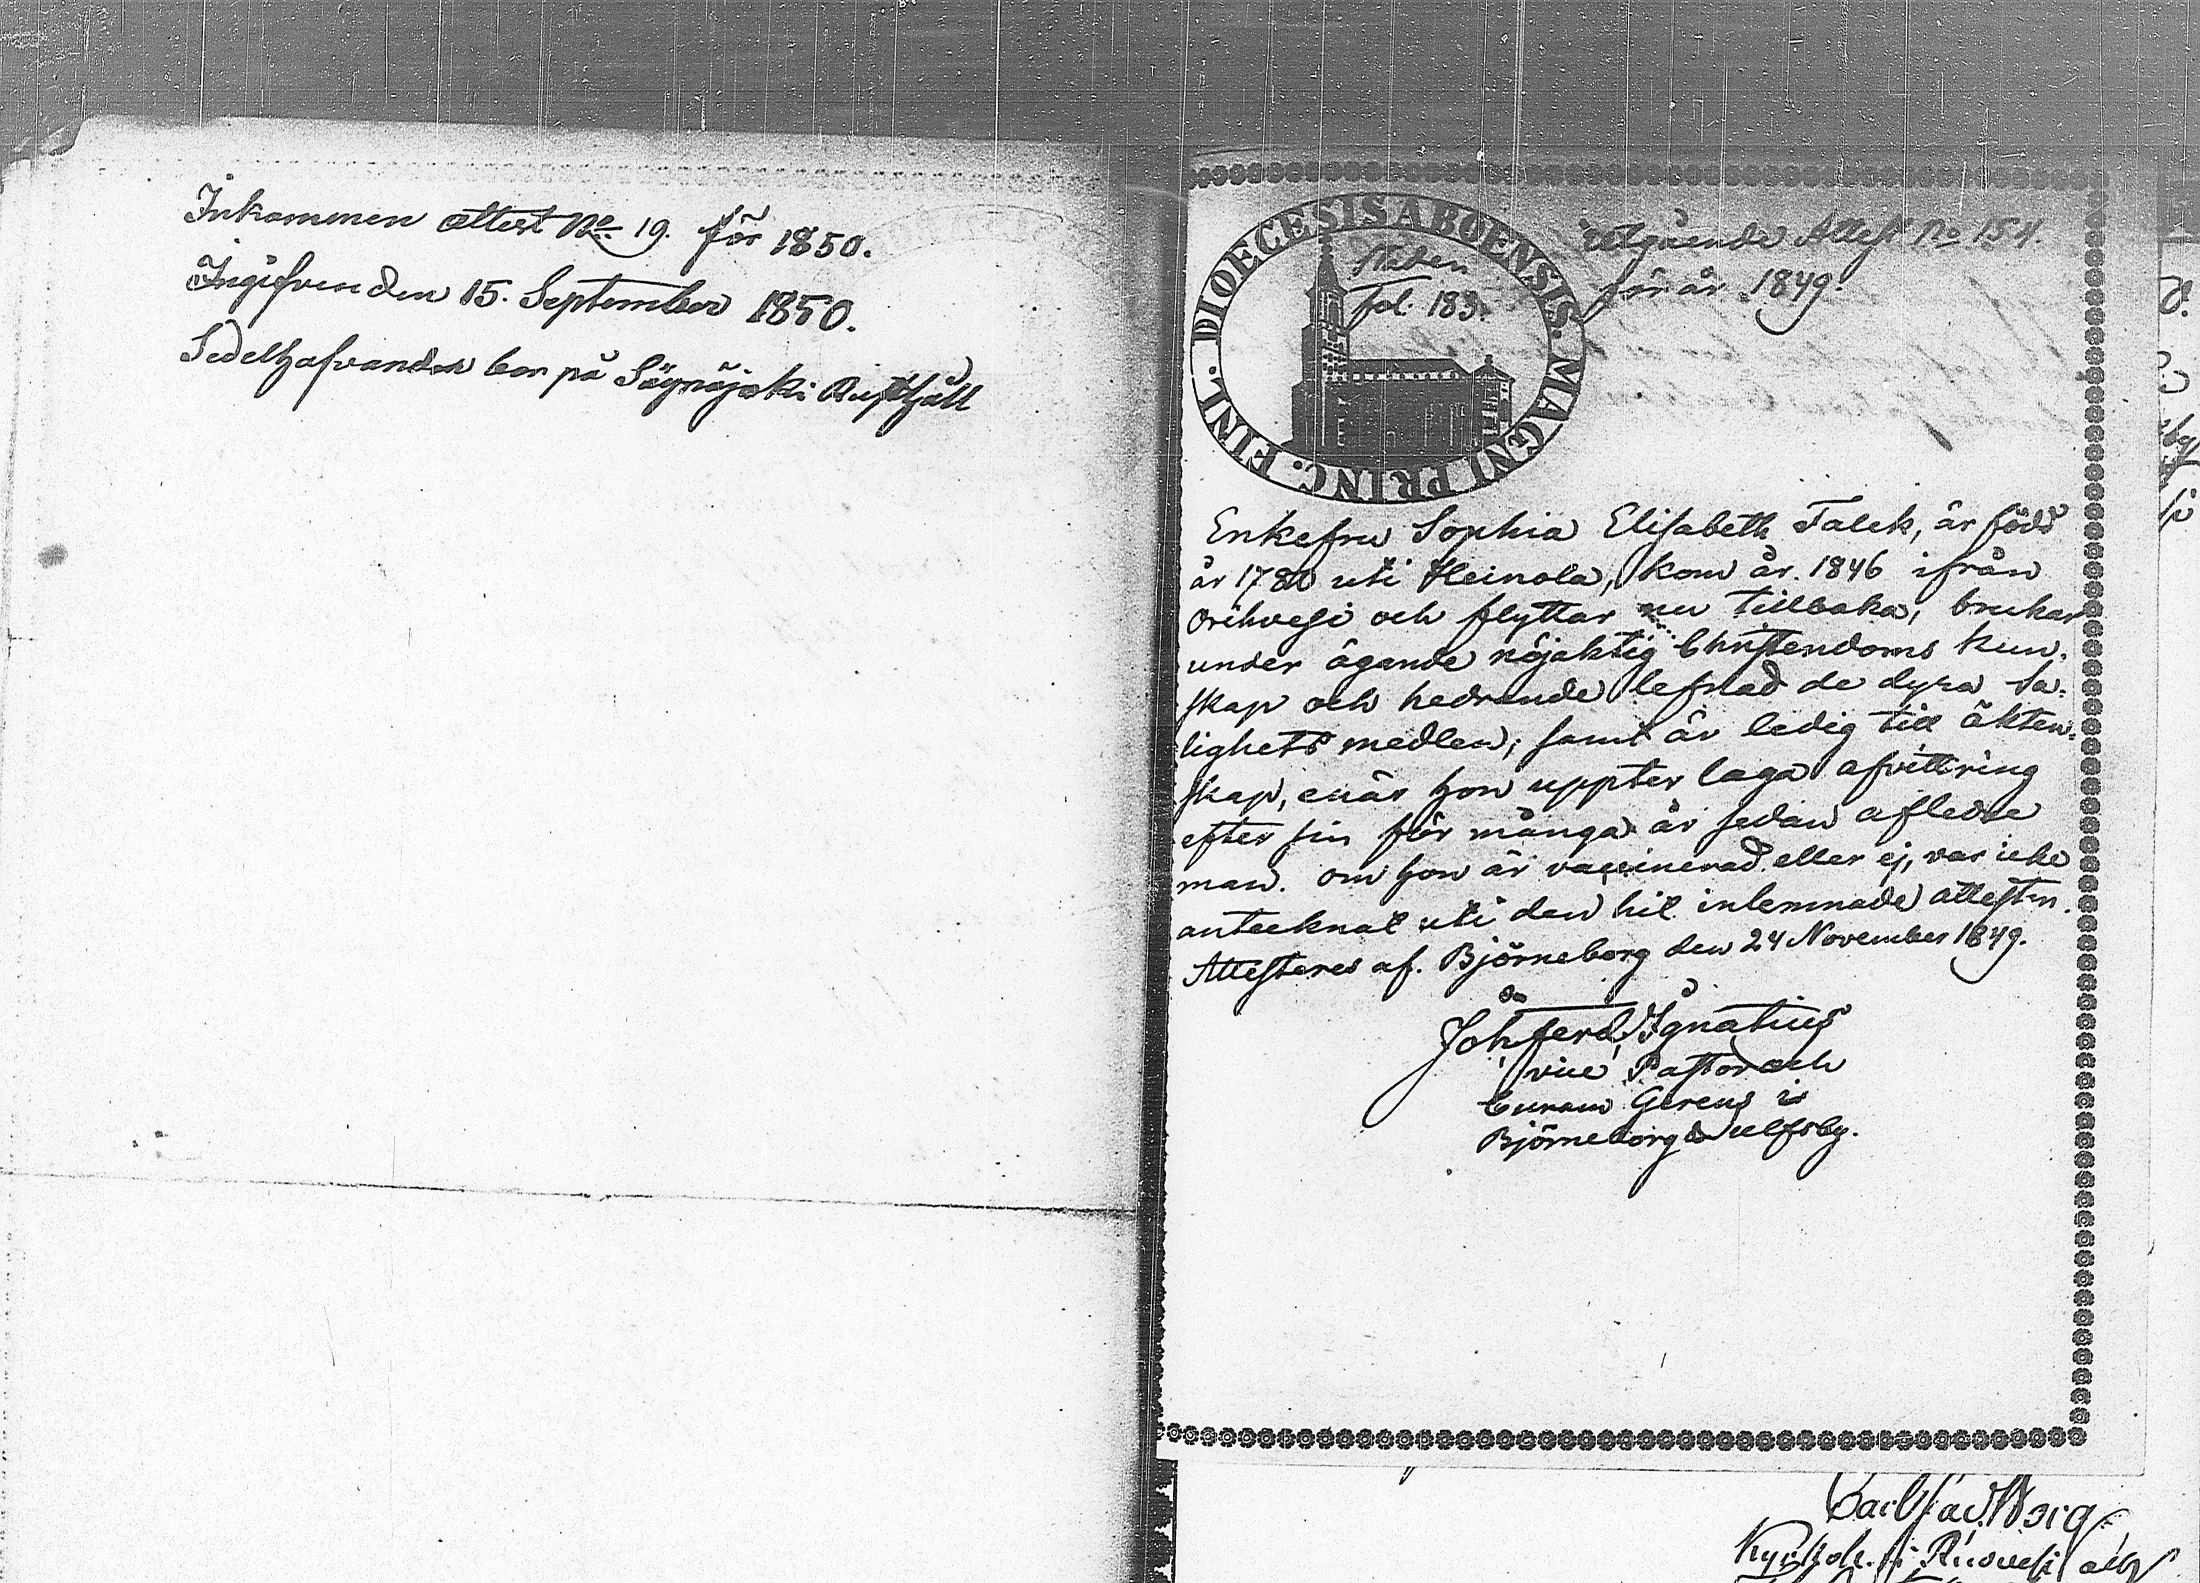 Inkommen attest No 19. för 1850.
Ingifven den 15. September 1850.
Sedelhafvanden bor på Säynäjoki Rusthåll
DIOECESIS ABOENSIS. MAGNI PRINC. FINL.
Staden
Fol. 183.
Utgående Attest No 154.
för år 1849.
Enkefru Sophia Elisabeth Falck, är född
år 1780 uti Heinola, kom år 1846 ifrån
Orihvesi och flyttar nu tillbaka, brukar
under ägande nöjaktig Christendoms kun-
skap och hedrande lefnad de dyra Sa-
lighets medlen, samt är ledig till äkten-
skap, enär hon uppter laga afvittring
efter sin för många år sedan aflidne
man. om hon är vaccinerad eller ej, var icke
antecknat uti den hit inlemnade attesten.
Attesteras af. Björneborg den 24 November 1849.
Joh Ferd. Ignatius
vice Pastor och
Curam Gerens i
Björneborg & Ulfsby.
Kyrkoh. i Ruovesi